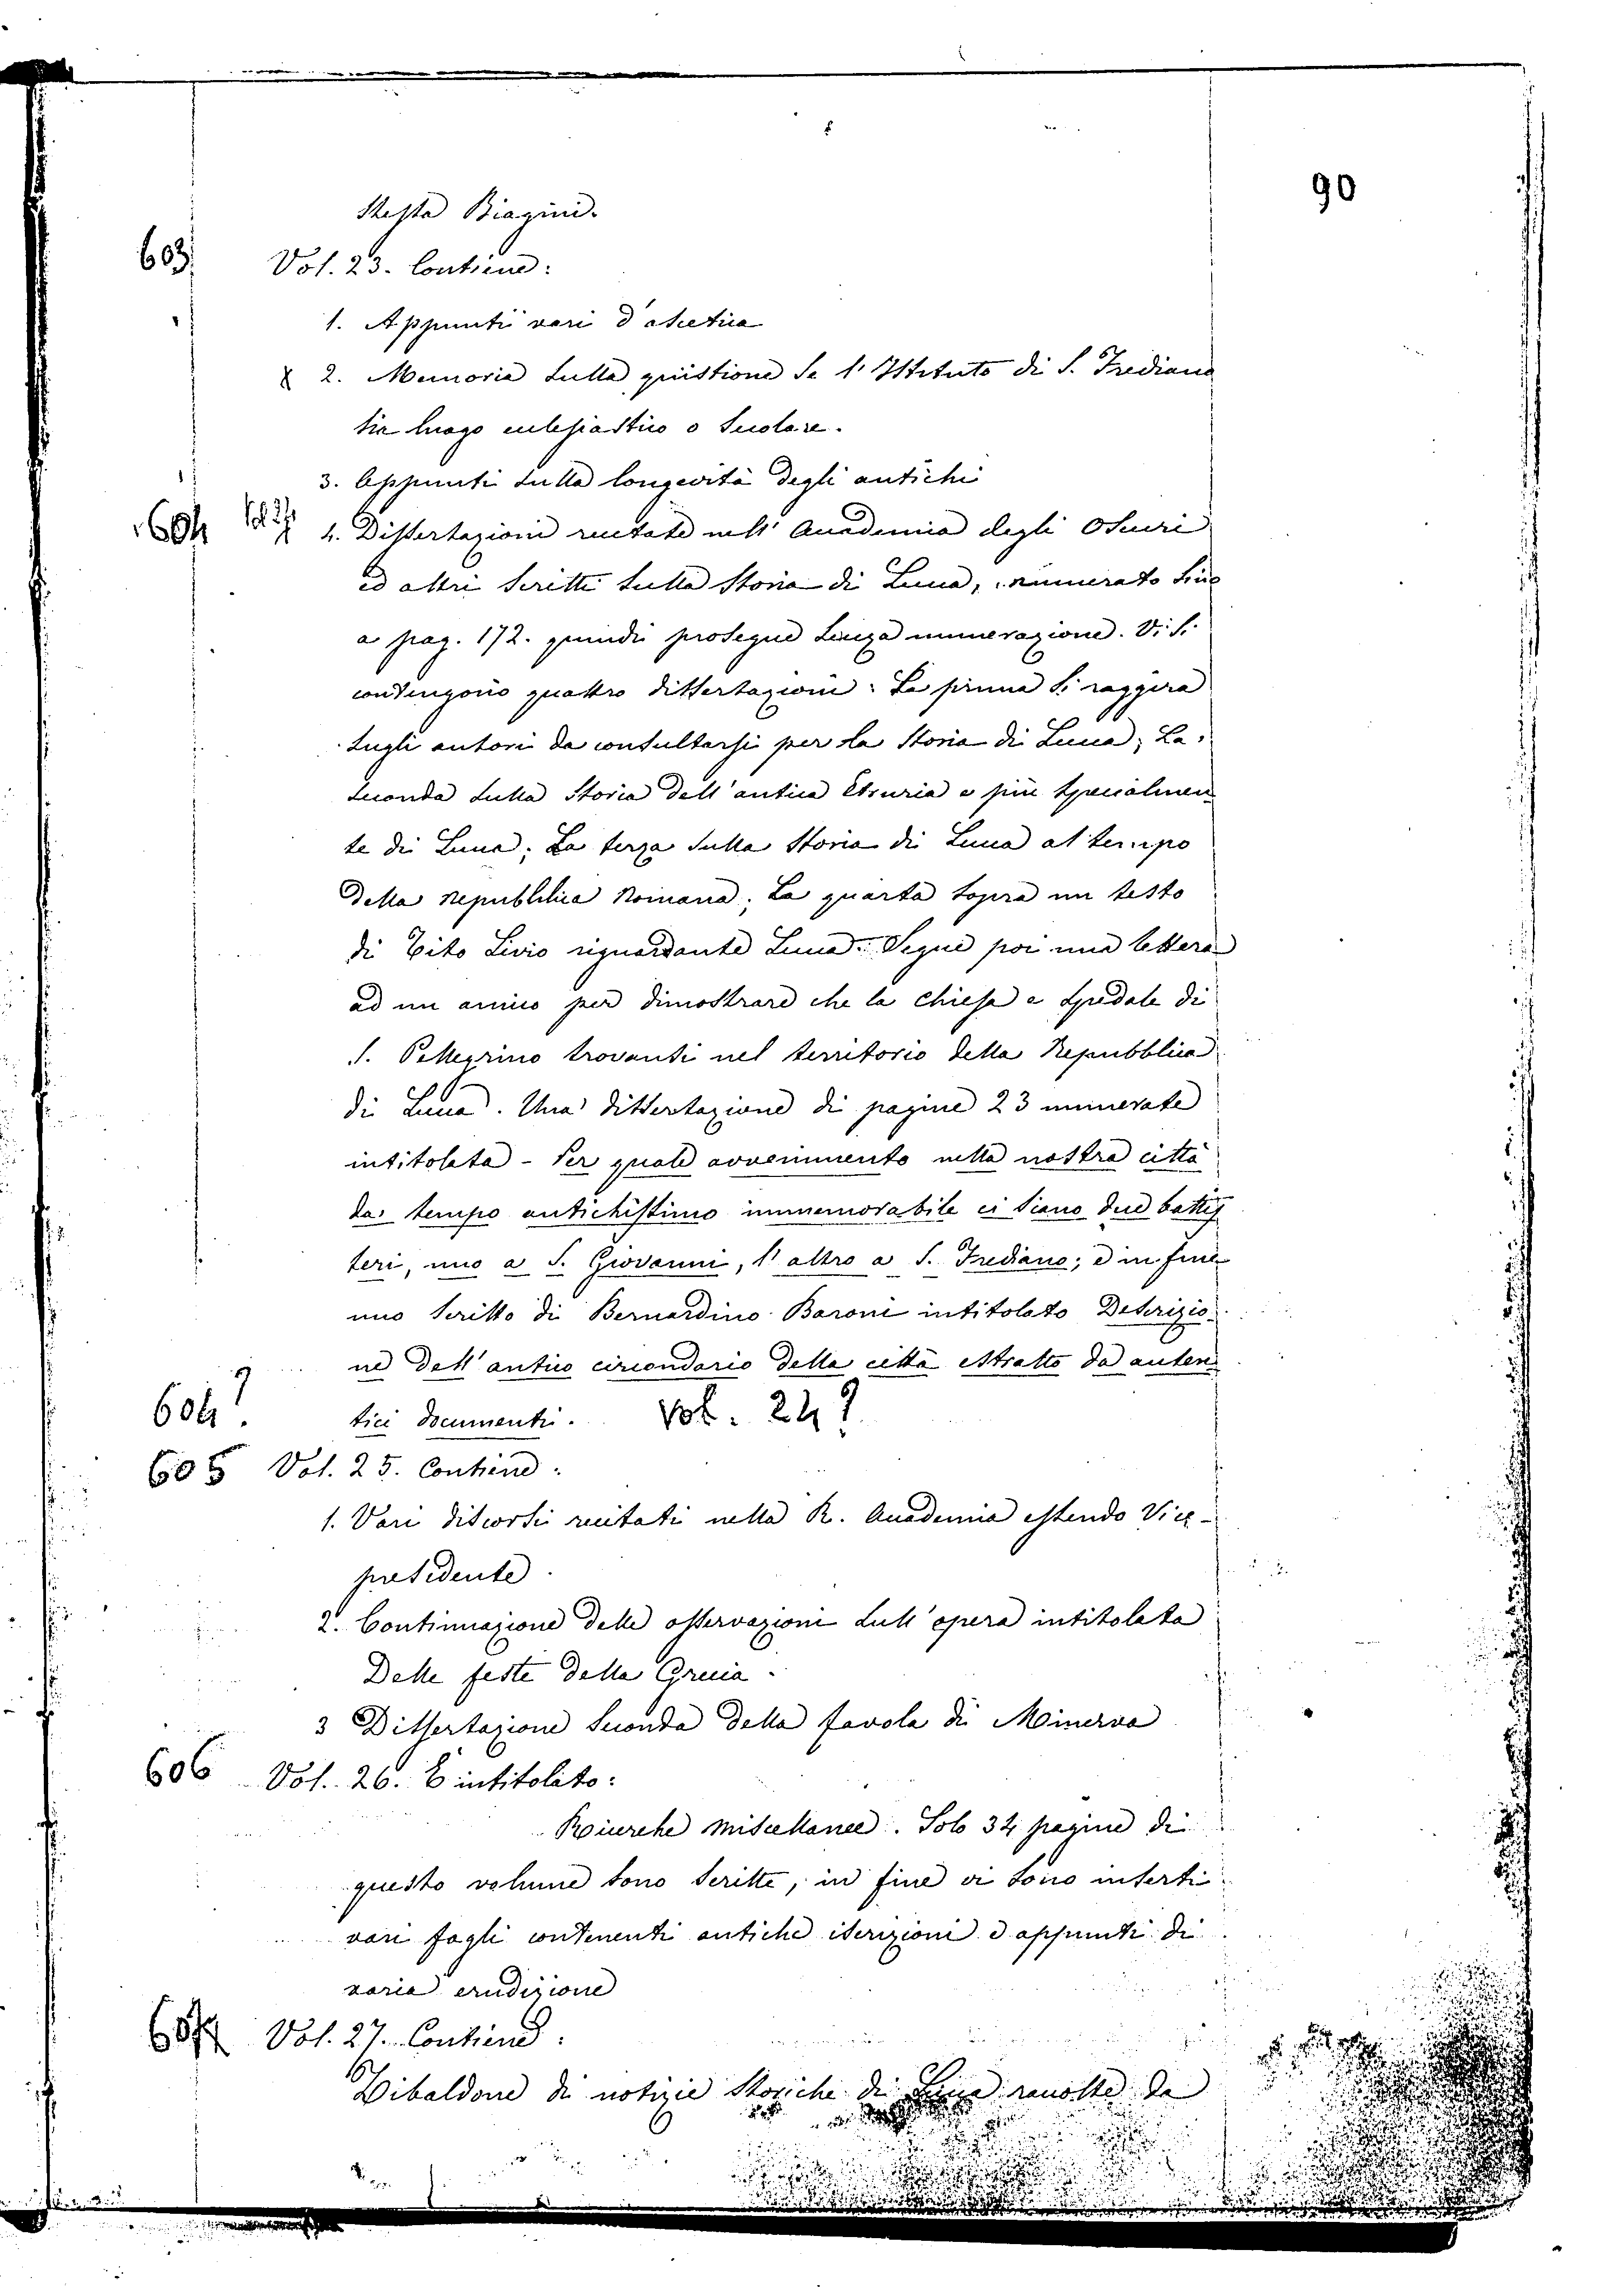 90
Stessa Biagini.
603. Vol. 23. Contiene:
1. Appunti vari d'ascetica
2. Memoria sulla quistione se l'Istituto di S. Frediano
sia luogo ecclesiastico o secolare.
3. Appunti sulla longevità degli antichi
604 4. Dissertazioni recitate nell'Accademia degli Oscuri
ed altri scritti sulla storia di Lucca, numerato fino
a pag. 172. quindi prosegue senza numerazione. Vi si
contengono quattro dissertazioni: La prima si raggira
sugli autori da consultarsi per la storia di Lucca; La
seconda sulla storia dell'antica Etruria e più specialmen
te di Lucca; La terza sulla storia di Lucca al tempo
della repubblica Romana; La quarta sopra un testo
di Tito Livio riguardante Lucca. Segue poi una lettera
ad un amico per dimostrare che la chiesa e spedale di
S. Pellegrino trovansi nel territorio della Repubblica
di Lucca. Una dissertazione di pagine 23 numerate
intitolata - Per quale avvenimento nella nostra città
da tempo antichissimo immemorabile ci siano due battis
teri, uno a S. Giovanni, l'altro a S. Frediano; e in fine
uno scritto di Bernardino Baroni intitolato Descrizio
ne dell'antico circondario della città estratto da auten
604? tici documenti. Vol. 24?
605 Vol. 25. Contiene:
1. Vari discorsi recitati nella R. Accademia essendo Vice-
presidente.
2. Continuazione delle osservazioni sull'opera intitolata
Delle feste della Grecia.
3 Dissertazione seconda della favola di Minerva
606 Vol. 26. È intitolato:
Ricerche miscellanee. Solo 34 pagine di
questo volume sono scritte, in fine vi sono inserti
vari fogli contenenti antiche iscrizioni e appunti di
varia erudizione
607 Vol. 27. Contiene:
Zibaldone di notizie storiche di Lucca raccolte da